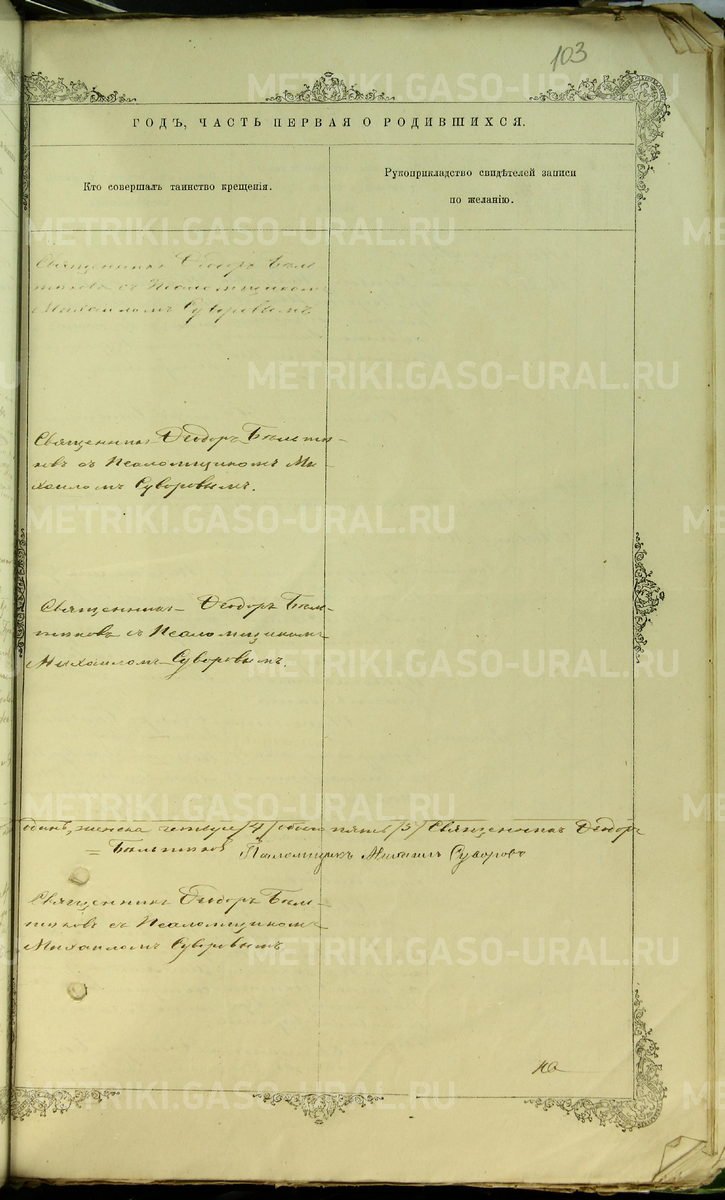 103
ГОДЪ, ЧАСТЬ ПЕРВАЯ О РОДИВШИХСЯ.
Кто совершалъ таинство крещенія.
Рукоприкладство свидѣтелей записи
по желанію.
Священникъ Ѳеодоръ
съ Псаломщикомъ
Михаиломъ Суворовымъ.
Священникъ Ѳеодоръ
съ Псаломщикомъ Ми-
хаиломъ Суворовымъ.
Священникъ Ѳеодоръ
съ Псаломщикомъ
Михаиломъ Суворовымъ.
одинъ, женска четыре /4/ обоего пять /5/ Священникъ Ѳеодоръ
Псаломщикъ Михаилъ Суворовъ
Священникъ Ѳеодоръ
съ Псаломщикомъ
Михаиломъ Суворовымъ.
на
METRIKI.GASO-URAL.RU